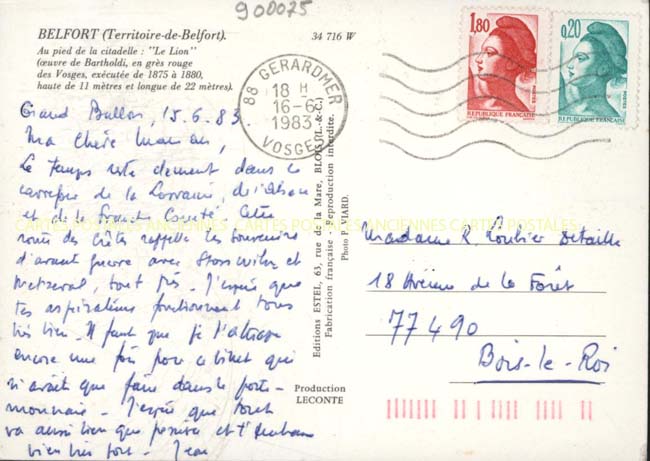 900075
BELFORT (Territoire-de-Belfort).
Au pied de la citadelle : "Le Lion"
(œuvre de Bartholdi, en grès rouge
des Vosges, exécutée de 1875 à 1880,
haute de 11 mètres et longue de 22 mètres).
34 716 W
88 GERARDMER
18 H
16-6
1983
VOSGES
1,80
REPUBLIQUE FRANÇAISE
POSTES
0,20
REPUBLIQUE FRANÇAISE
POSTES
Grand Ballon, 15.6.83
Ma chère Maman,
Le temps reste clement dans le
carrefour de la Lorraine, de l'Alsace
et de la Franche Comté. Cette
route des crêtes rappelle les souvenirs
d'avant guerre avec Stosswihr et
Metzeral, tout près. J'espère que
tes aspirateurs fonctionnent tous
très bien. Il faut que je
encore une fois pour ce billet qui
n'avait que faire dans le porte-
monnaie. J'espère que tout
va aussi bien que possible et t'embrasse
bien très fort. Jean
Editions ESTEL, 63, rue de la Mare, BLOIS (L.-&-C.)
Fabrication française - Reproduction interdite.
Photo P. VIARD.
Production
LECONTE
CARTES POSTALES ANCIENNES CARTES POSTALES ANCIENNES CARTES POSTALES
Madame R. Loubier Detaille
18 Avenue de la Forêt
77490
Bois-le-Roi